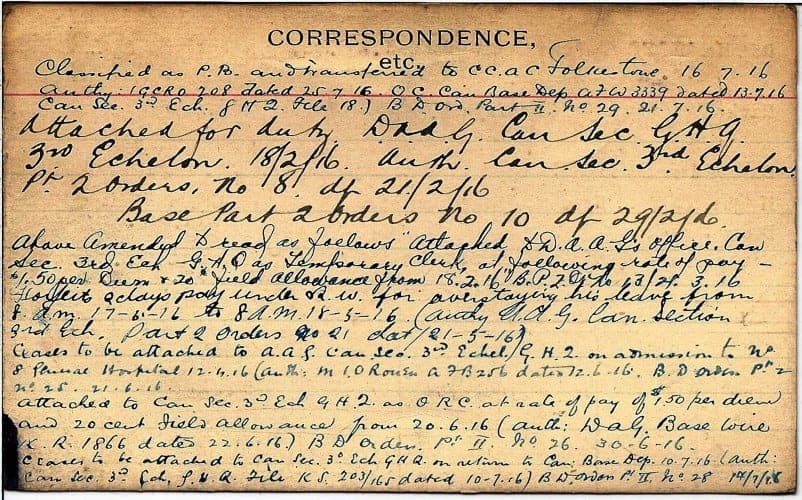 CORRESPONDENCE,
etc.
Classified as P.B. and transferred to C.C.A.C Folkestone. 16 7.16
Authy: 1GCRO 208 dated 25.7.16. O.C. Can Base Dep A.F.W 3339 dated 13.7.16
Can Sec. 3rd Ech. G H Q File 18.) B D Ord. Part II. No 29. 21.7.16.
Attached for duty D.A.A.G. Can Sec G H Q
3rd Echelon. 18/2/16. Auth Can. Sec. 3rd Echelon
Pt 2 Orders. No 8. df 21/2/16
Base Part 2 Orders No 10 df 29/2/16.
Above Amended to read as follows "Attached to D.A.A.G's office. Can
Sec. 3rd Ech G.H.Q as Temporary Clerk, at following rate of pay -
$1.50 per Diem & 20¢ field allowance from 18.2.16" B.P.2
Forfeits 2 days pay under R.W. for overstaying his leave from
8 A.M. 17-5-16 to 8 A.M. 18-5-16 (Authy A.A.G. Can. Section
3rd Ech. Part 2 Orders No 21 dat/21-5-16)
Ceases to be attached to A.A.G. Can Sec. 3rd Echel/G.H.Q. on admission to No
8 General Hospital 12.6.16 (Auth: M.I.O Rouen A F B256 dated 12.6.16. B.D Orders Pt 2
No 25. 21.6.16.
Attached to Can Sec. 3rd Ech G H Q. as O.R.C. at rate of pay of $1.50 per diem
and 20 cent field allowance from 20.6.16 (Auth: DAG. Base wire
K.R. 1866 dated 22.6.16.) B D Orders. Pt II. No 26. 30-6-16.
Ceases to be attached to Can Sec. 3rd Ech G H Q. on return to Can: Base Dep. 10.7.16 (Auth:
Can Sec. 3rd Ech, G.H.Q. File K5. 203/165 dated 10-7.16) B D Orders Pt II. No 28 14/7/16